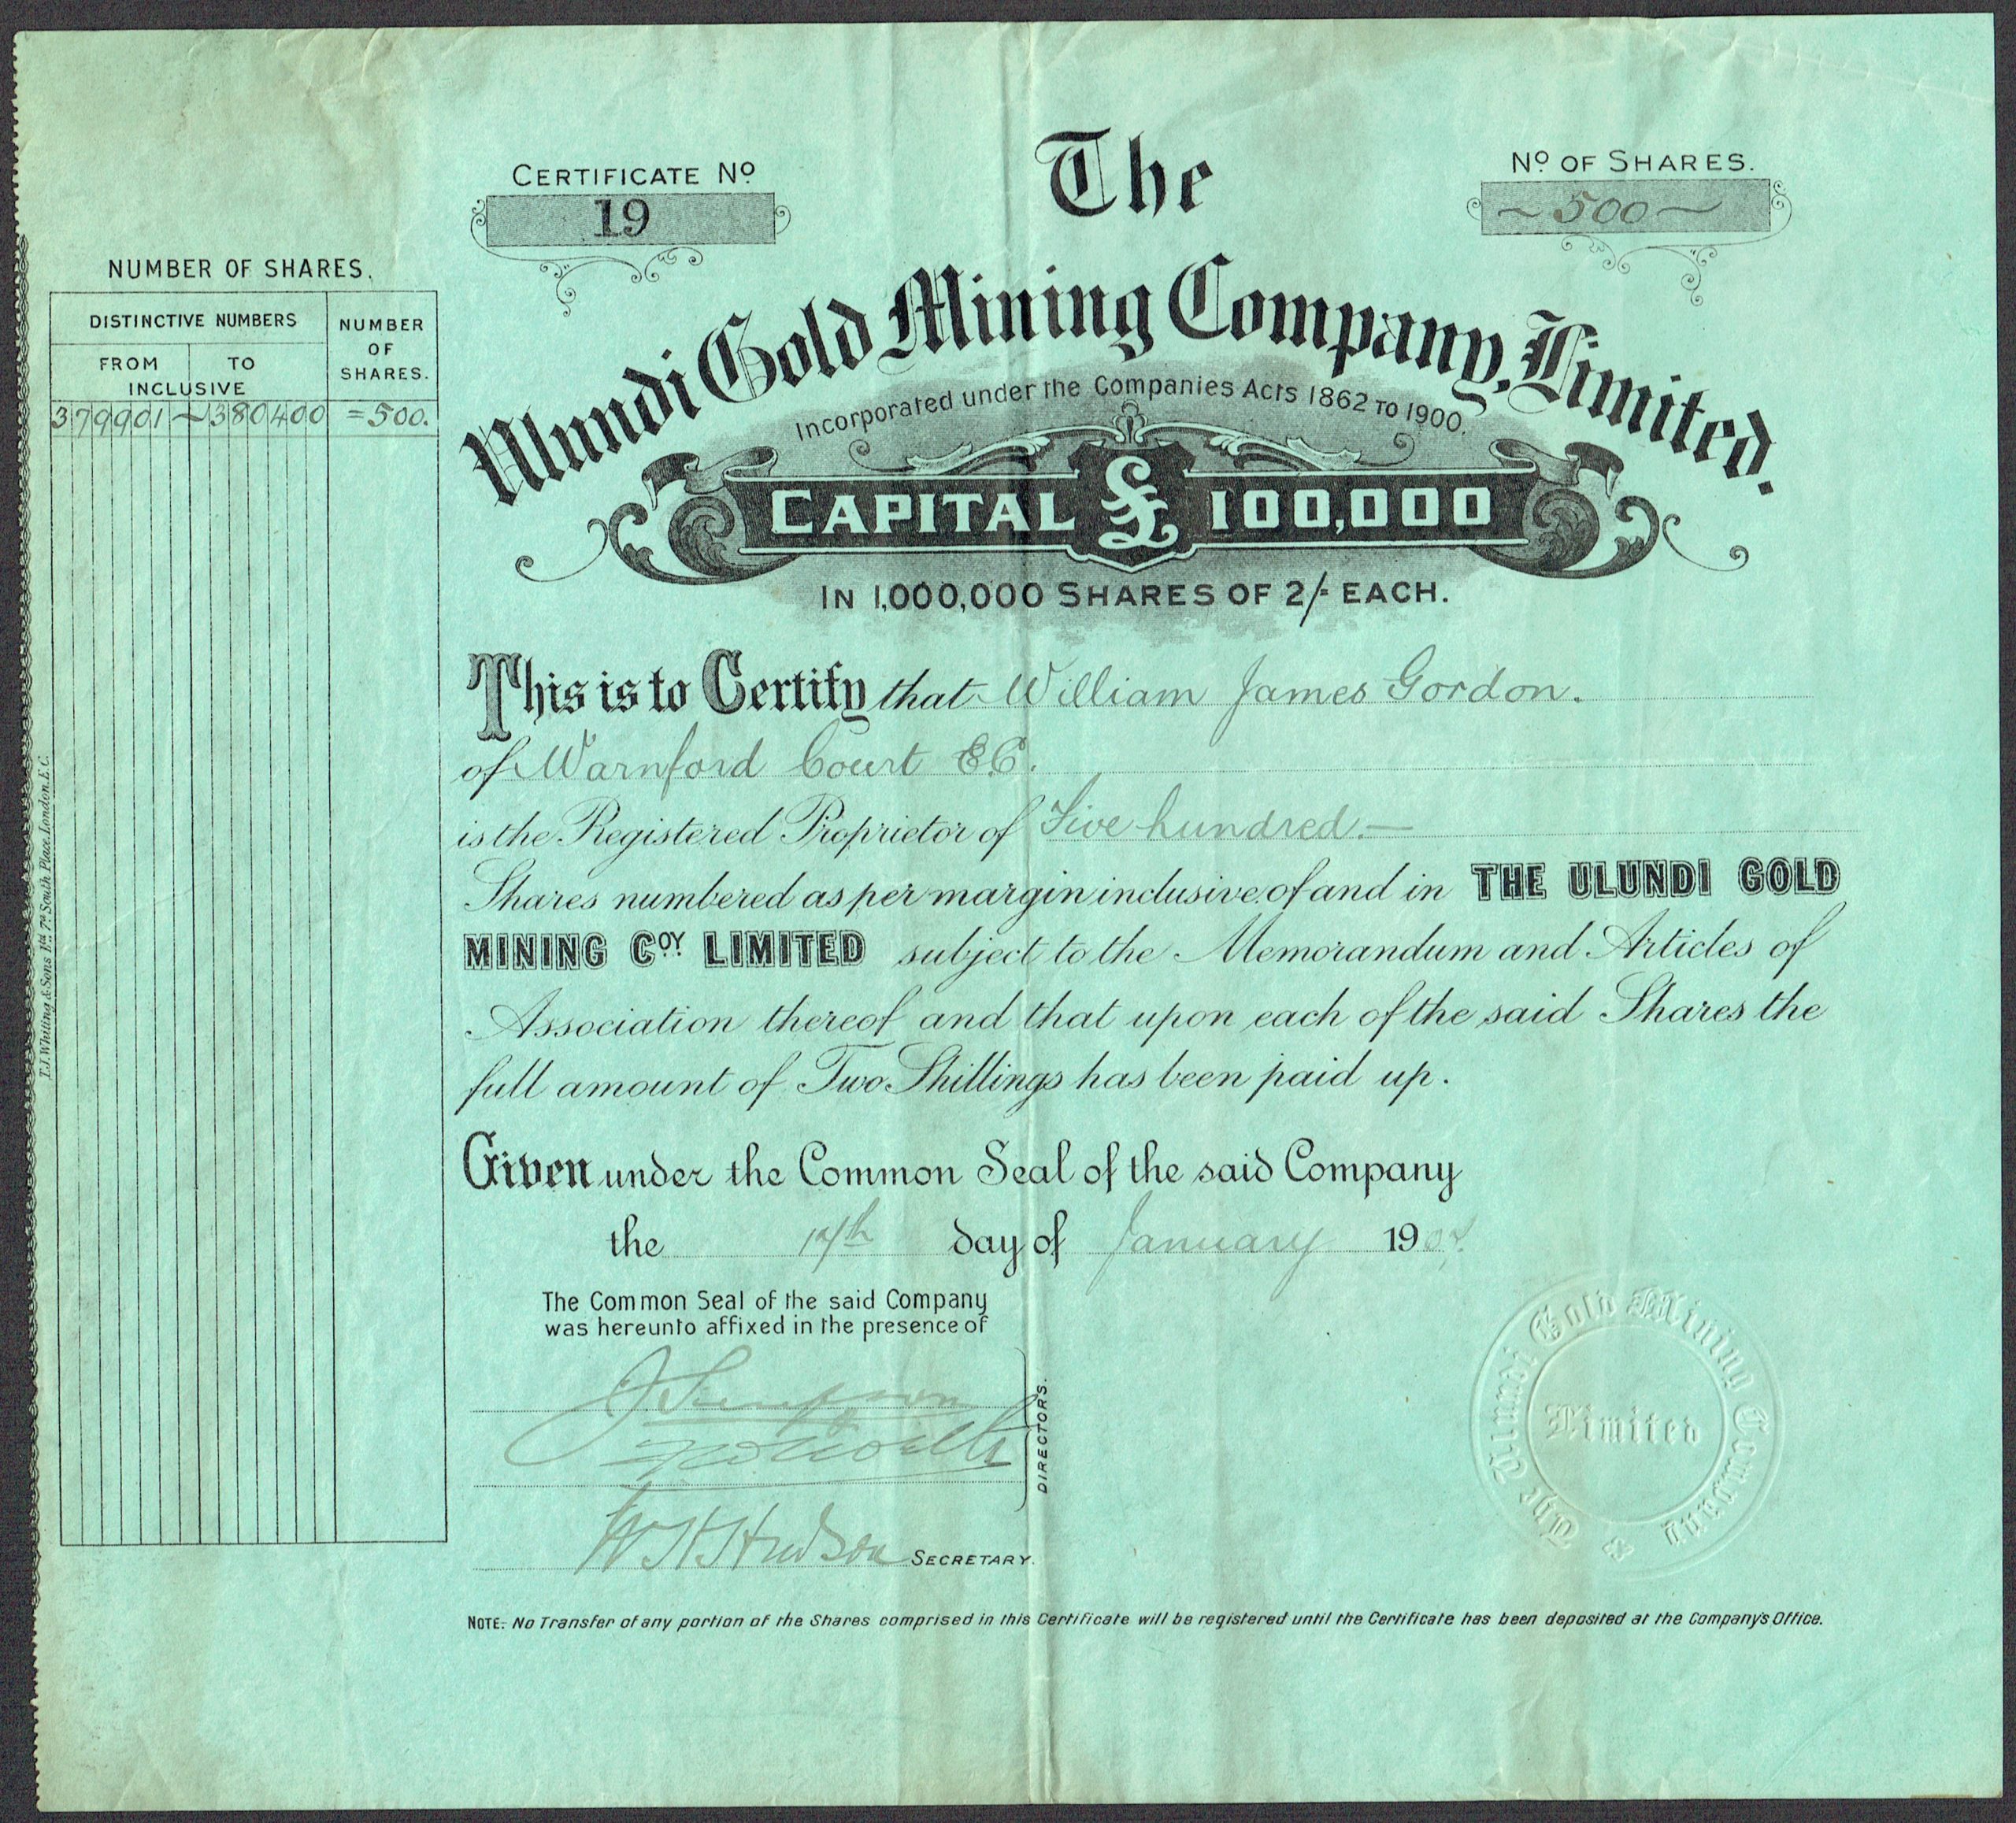 The
CERTIFICATE Nº
19
Nº OF SHARES.
~ 500 ~
Ulundi Gold Mining Company, Limited.
Incorporated under the Companies Acts 1862 TO 1900.
CAPITAL £ 100,000
IN 1,000,000 SHARES OF 2/= EACH.
NUMBER OF SHARES.
DISTINCTIVE NUMBERS
NUMBER OF SHARES.
FROM TO
INCLUSIVE
379901 ~ 380400 = 500.
This is to Certify that William James Gordon.
of Warnford Court E.C.
is the Registered Proprietor of Five hundred.—
Shares numbered as per margin inclusive of and in THE ULUNDI GOLD
MINING COY. LIMITED subject to the Memorandum and Articles of
Association thereof and that upon each of the said Shares the
full amount of Two Shillings has been paid up.
Given under the Common Seal of the said Company
the day of January 190
The Common Seal of the said Company
was hereunto affixed in the presence of
DIRECTORS.
W H Hudson SECRETARY.
The Ulundi Gold Mining Company
Limited
NOTE:- No Transfer of any portion of the Shares comprised in this Certificate will be registered until the Certificate has been deposited at the Company's Office.
T.J. Whiting & Sons Ltd. 7a South Place, London, E.C.